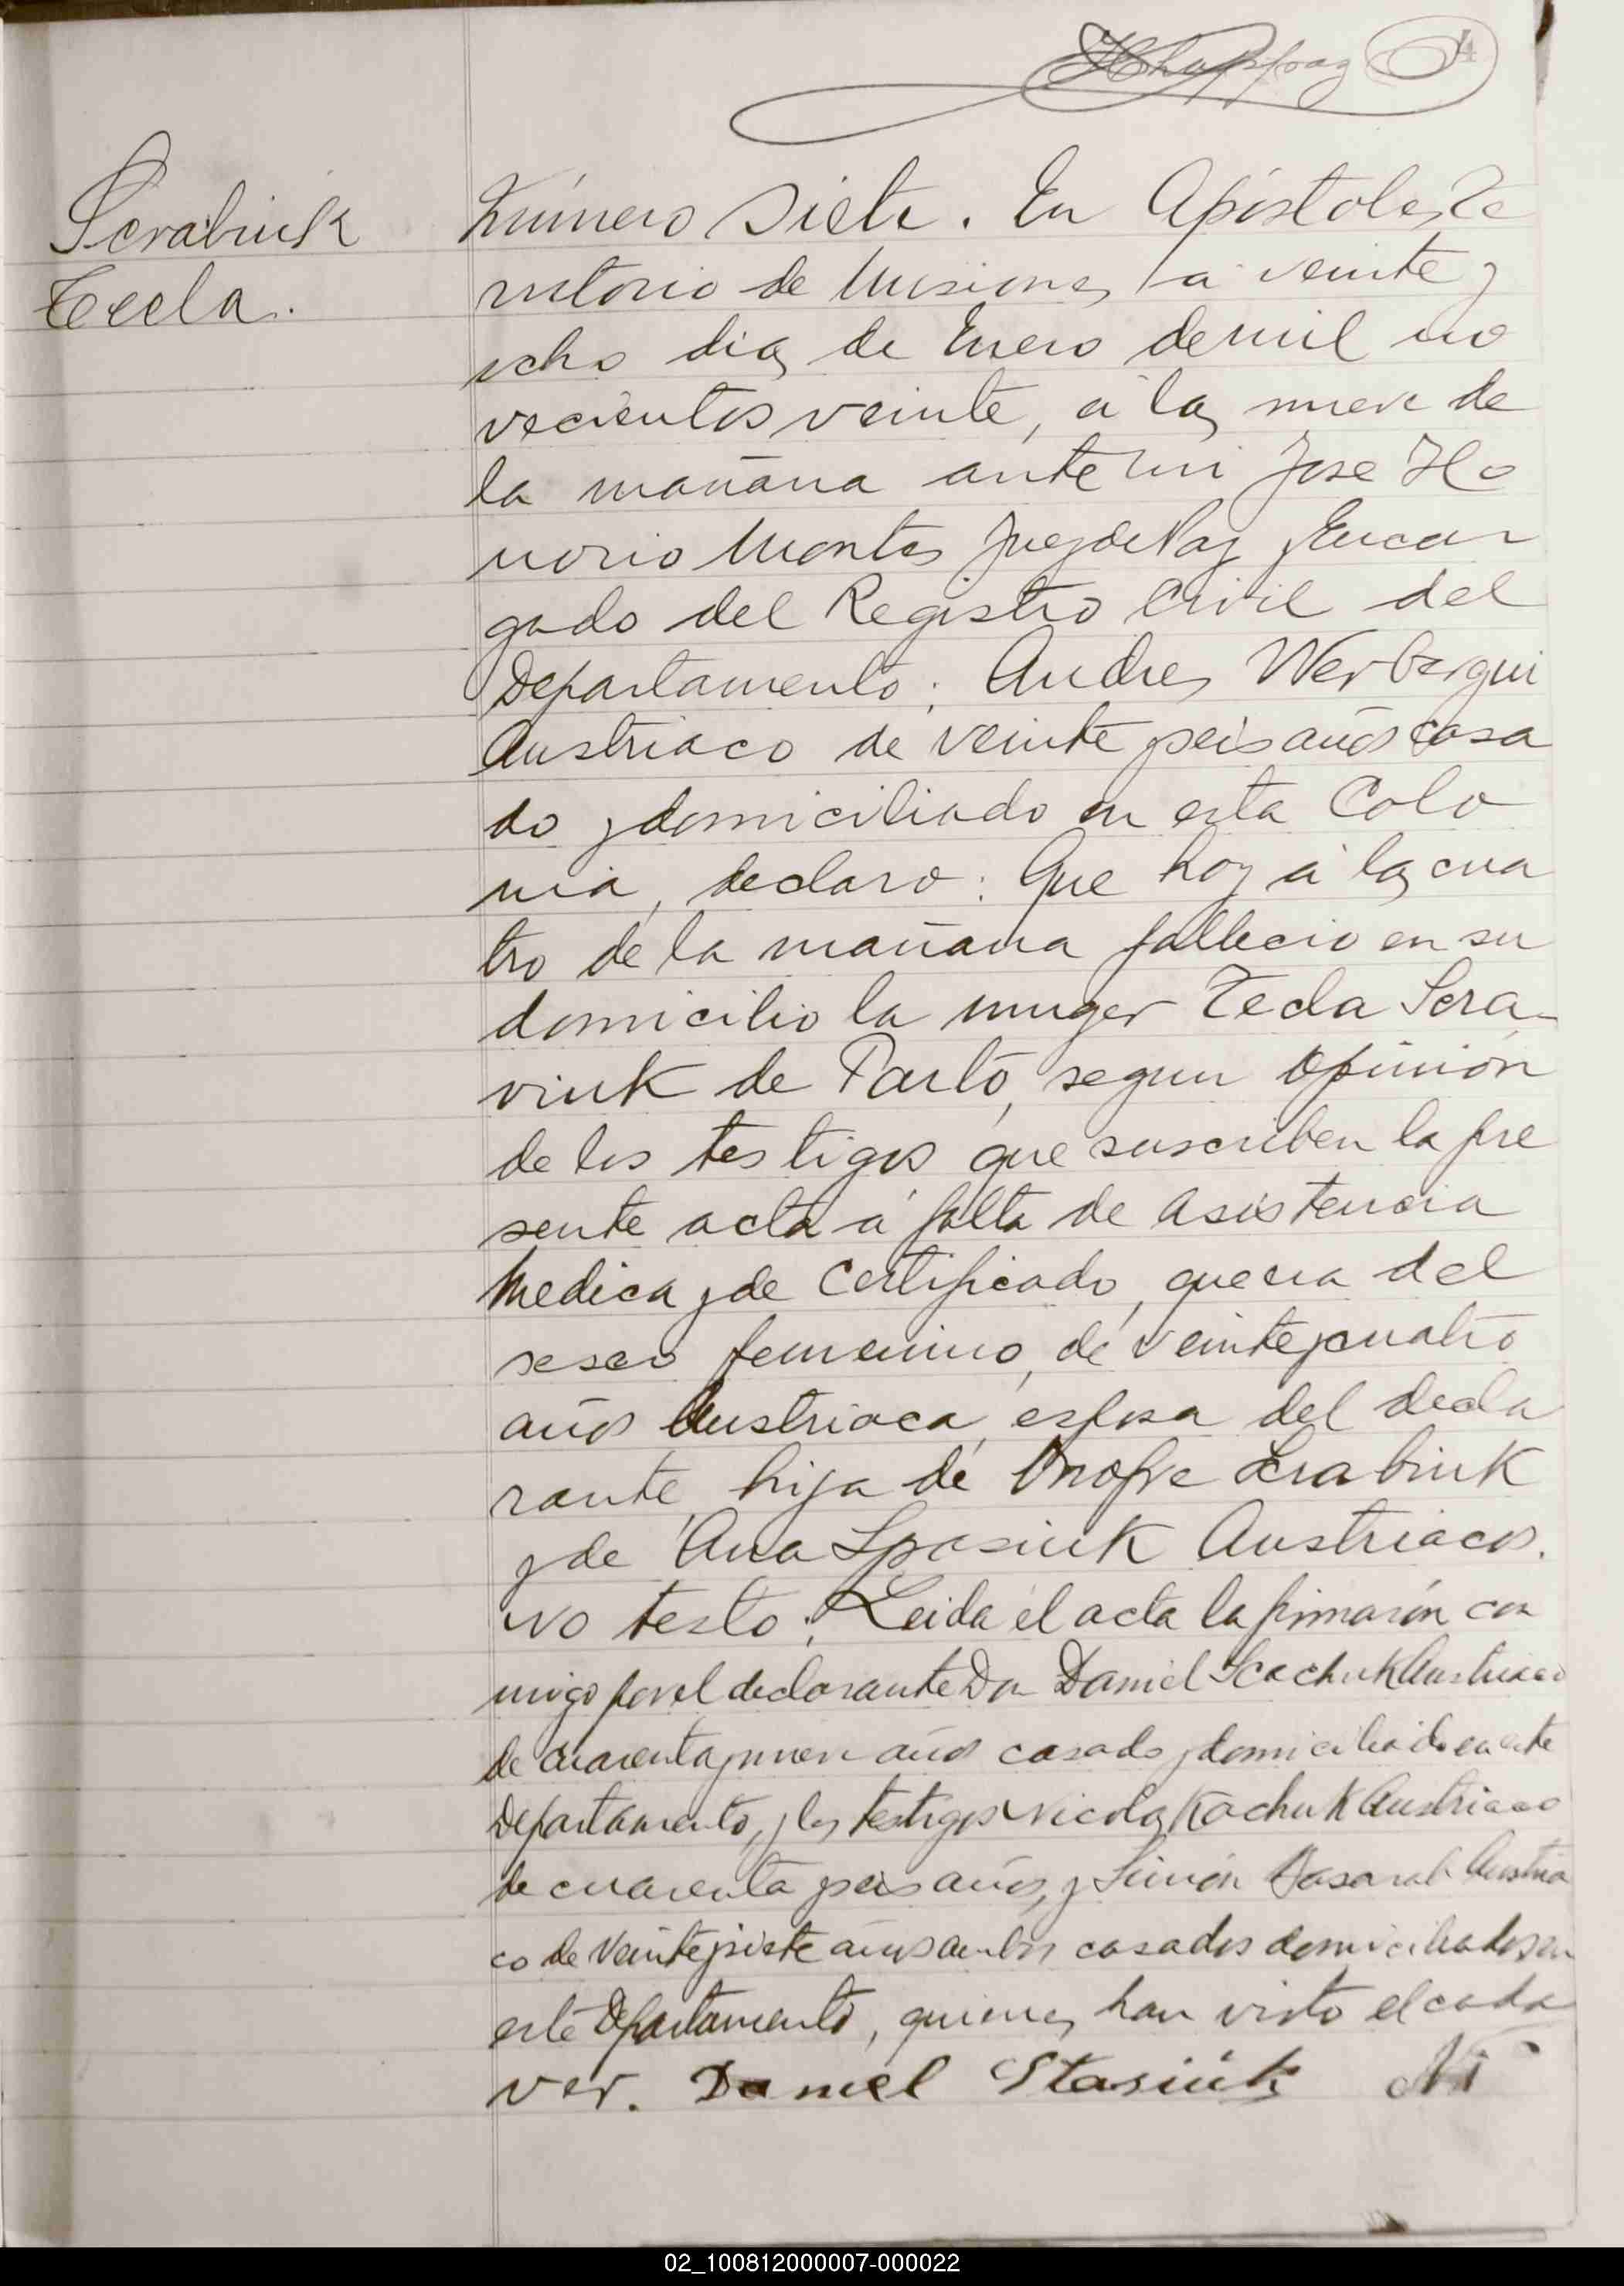 4
Scrabiuk
Tecla.
Número Siete. En Apóstoles, Te
rritorio de Misiones, a veinte y
ocho dias de Enero de mil no
vecientos veinte, á las nueve de
la mañana ante mi Jose Ho
norio Montes Juez de Paz y Encar
gado del Registro Civil del
Departamento; Andres Werbergui
Austriaco de veinte y seis años casa
do y domiciliado en esta Colo
nia, declaro: Que hoy á las cua
tro de la mañana fallecio en su
domicilio la muger Tecla Scra-
viuk de Parto, segun opinión
de los testigos que suscriben la pre
sente acta á falta de asistencia
Medica y de Certificado, que era del
sescso femenino, de veinte y cuatro
años Austriaca, esposa del decla
rante, hija de Onofre Scrabiuk
y de Ana Spasiuk Austriacos.
No testo; Leida el acta la firmarón con
migo por el declarante Don Daniel Austriaco
de cuarenta y nueve años casado y domiciliado en este
Departamento, y los testigos Nicolas Kachuk Austriaco
de cuarenta y seis años, y Simón Austria
co de veinte y siete años ambos casados domiciliados en
este Departamento, quienes han visto el cada
ver. Daniel Stasiuk Ni
02_100812000007-000022